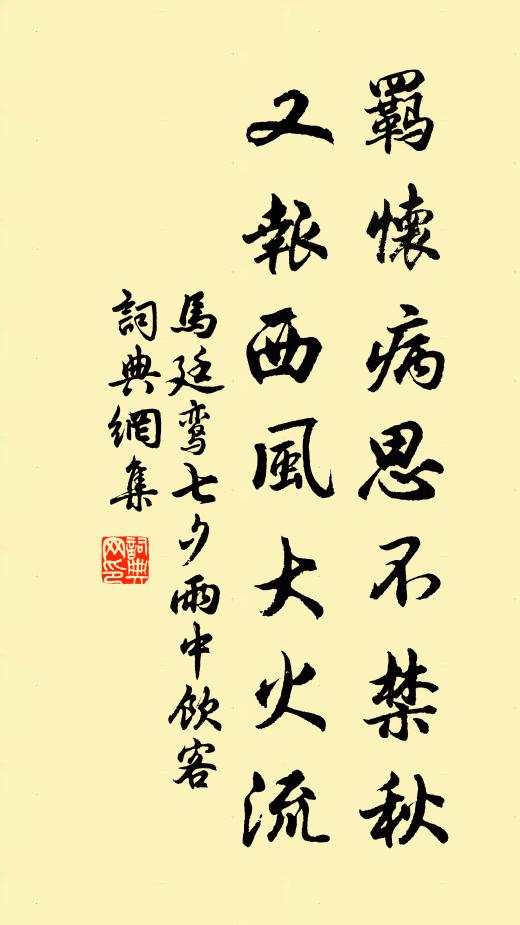 羈懷病思不禁秋
又報西風大火流
馬廷鸾七夕雨中飲客
詞典網集
詞典網印